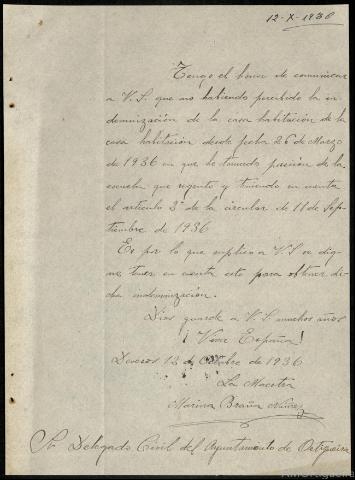 12-X-1936
Tengo el honor de comunicar
a V.S. que no habiendo percibido la in-
demnización de la casa habitación de la
casa habitación desde fecha 26 de Marzo
de 1936 en que he tomado posesión de la
escuela que regento y teniendo en cuenta
el artículo 2º de la circular de 11 de Sep-
tiembre de 1936
Es por lo que suplico a V.S se dig-
ne tener en cuenta esto para obtener di-
cha indemnización.
Dios guarde a V.S. muchos años
¡Viva España!
Devesos 12 de Octubre de 1936
La Maestra
Marina Braña Núñez
Sr Delegado Civil del Ayuntamiento de Ortigueira